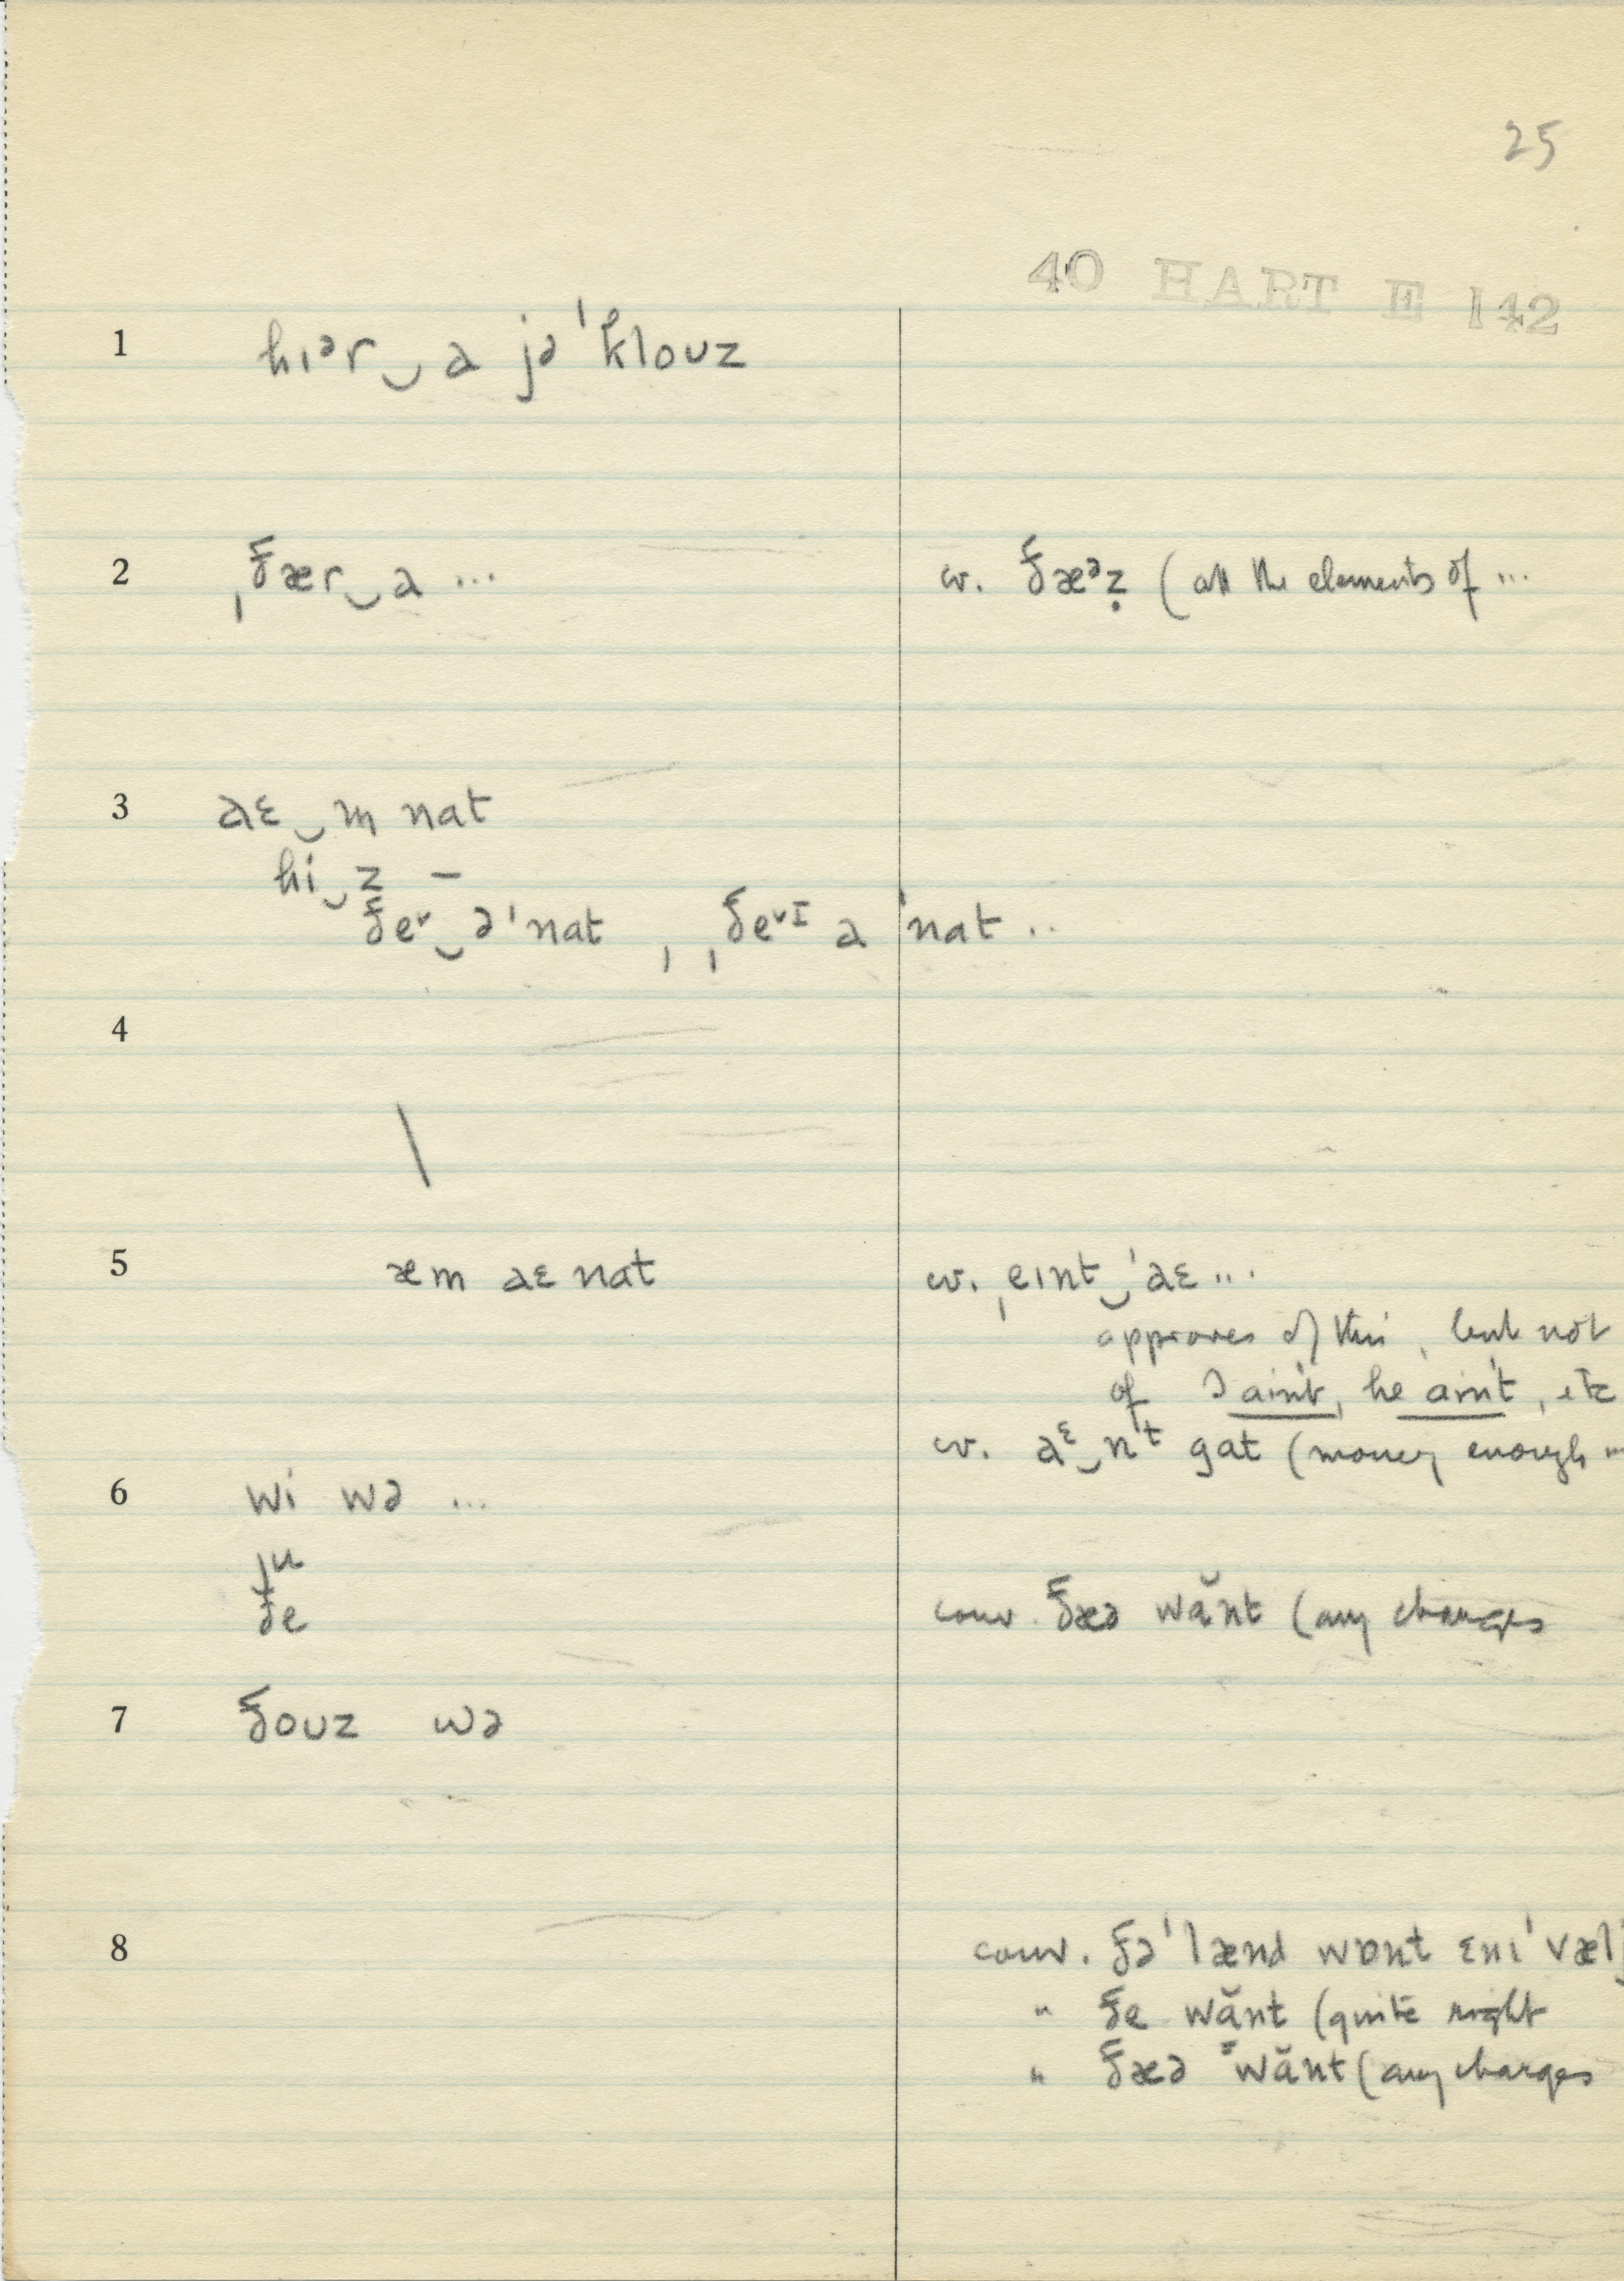 25
40 HART E 142
1 hɪᵊr‿ə jə ˈkloʊz
2 ˌðær‿ə ... cv. ðæᵊz̩ (all the elements of ...
3 aɛ‿m nat
hi‿z –
ðeᵛ‿əˈnat , ˌðeᵛɪ ə ˈnat ..
4
\
5 æm aɛ nat cv. ˌeɪnt‿ˈaɛ ...
approves of this, but not
of I ain't, he ain't, etc
cv. aᵋ‿nᵗt gat (money enough ...
6 wi wə ...
ju
ðe conv. ðæə wə̆nt (any charges
7 ðoʊz wə
8 conv. ðəˈlænd wɒnt ɛnɪˈvælj
" ðe wə̆nt (quite right
" ðæə wə̆nt (any charges